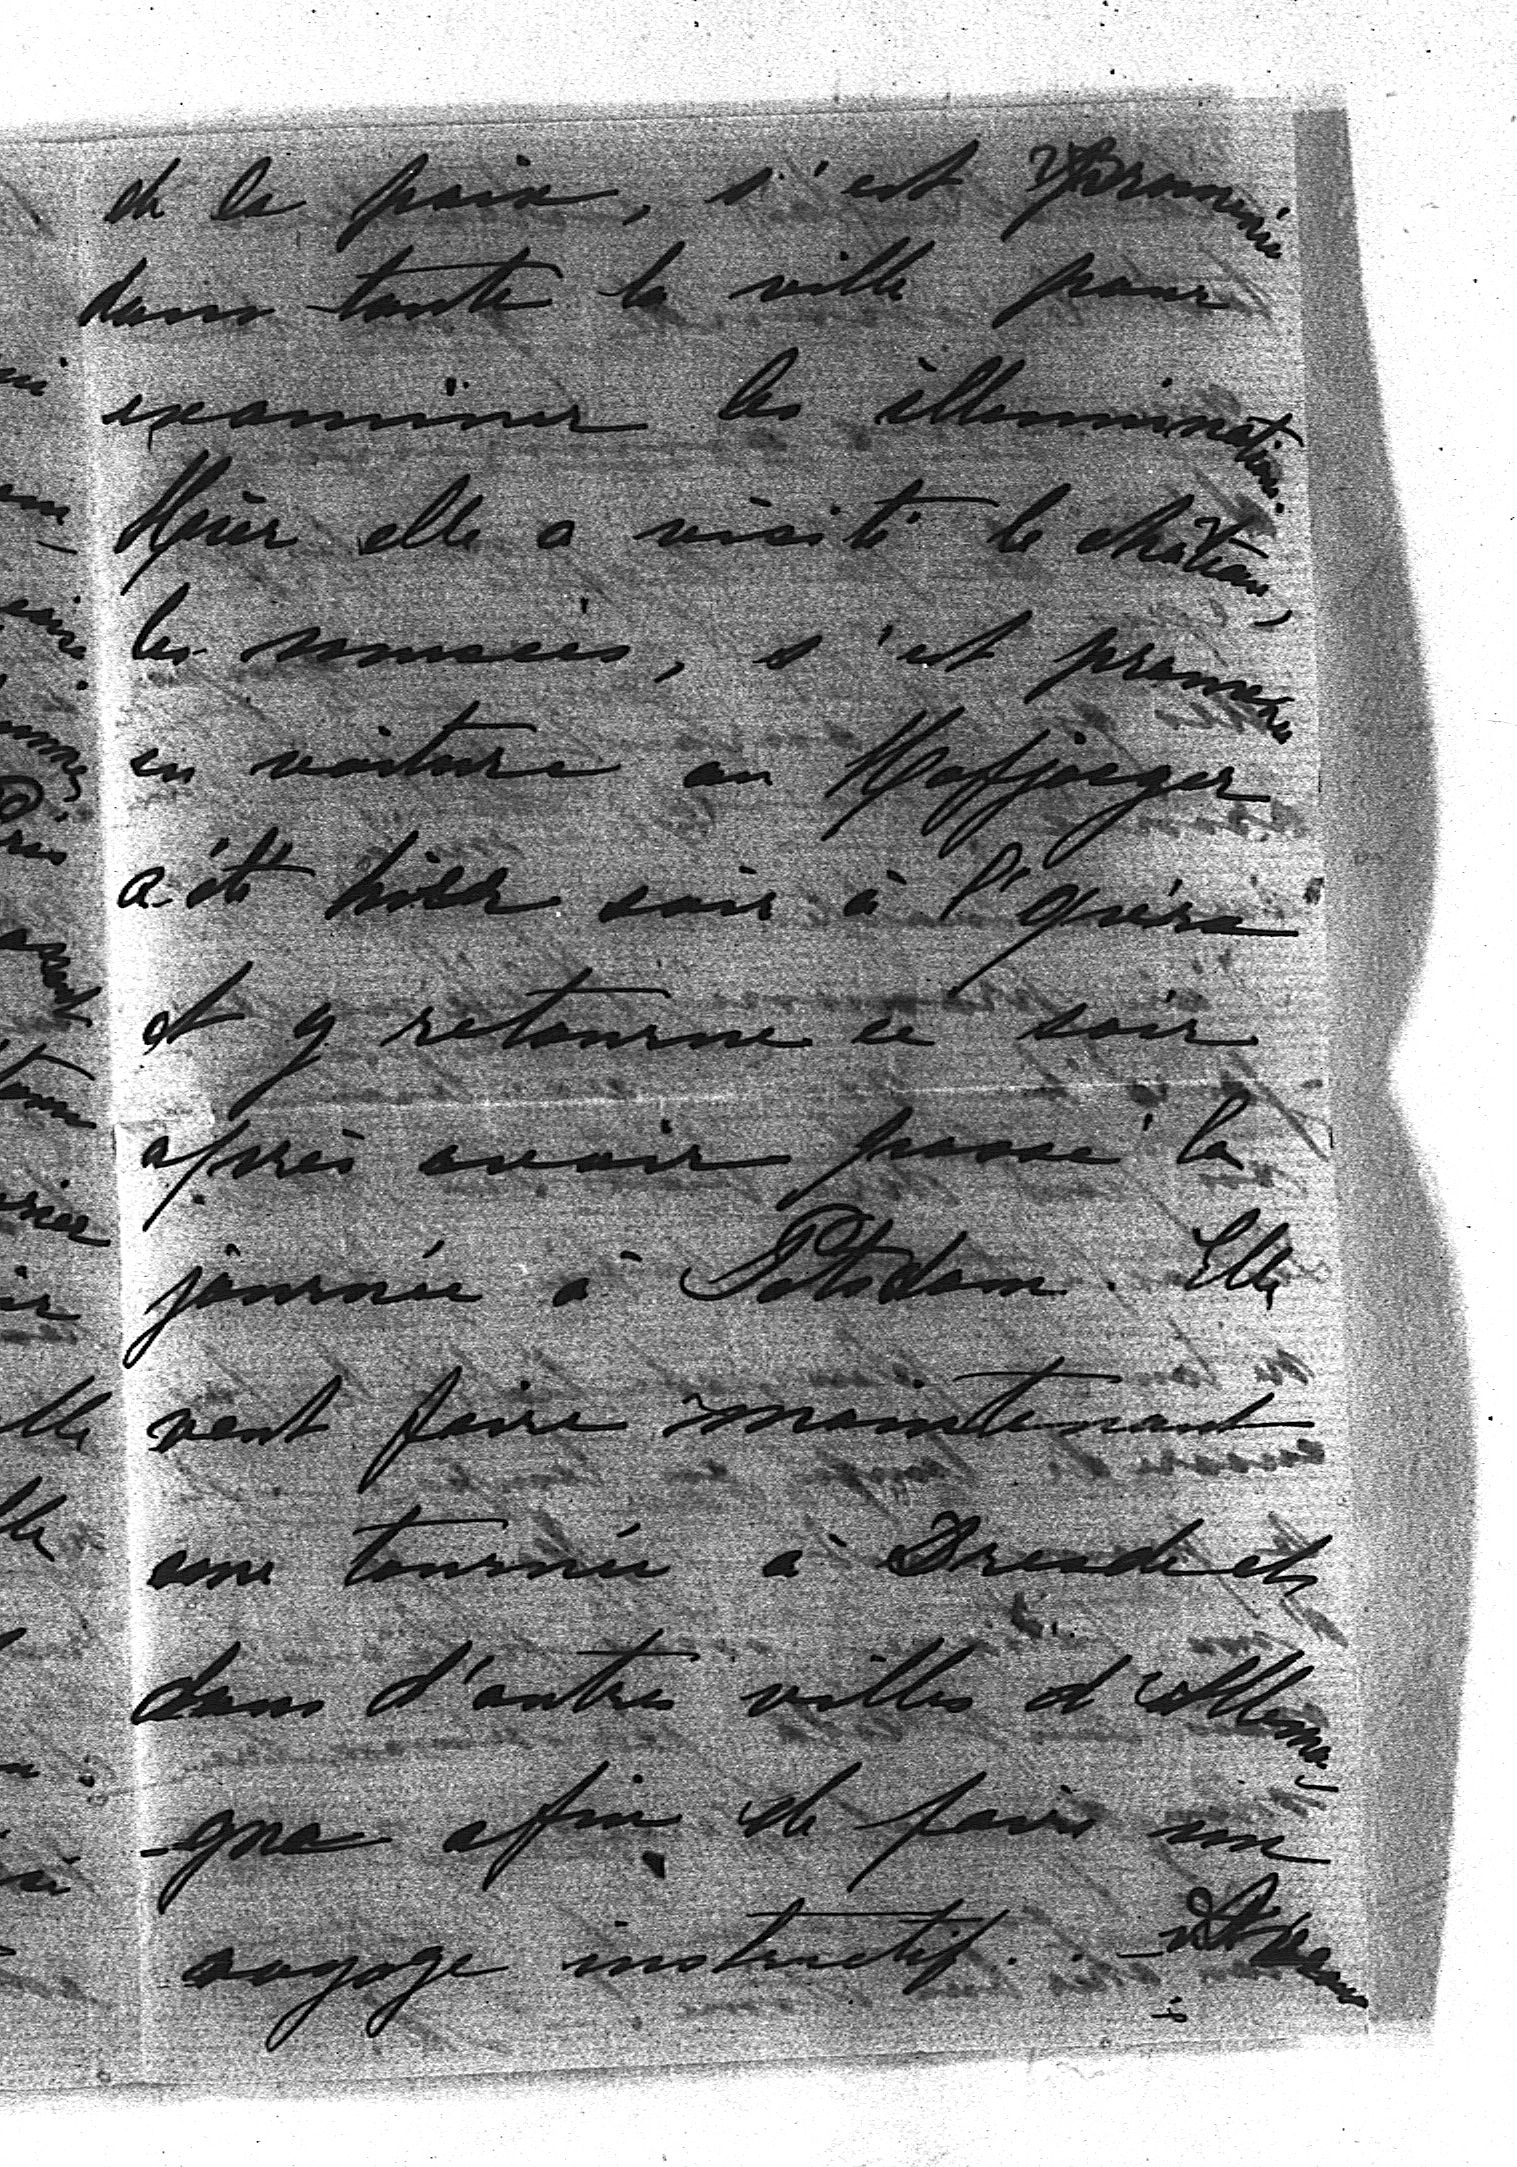 de la paix, s'est promenée
dans toute la ville pour
examiner les illuminations.
Hier elle a visité le château,
les musées, s'est promenée
en voiture au Hofjaeger
a été hier soir à l'opéra
et y retourne ce soir
après avoir passé la
journée à Potsdam. Elle
veut faire maintenant
une tournée à Dresde et
dans d'autres villes d'Allema-
-gne afin de faire un
voyage instructif.